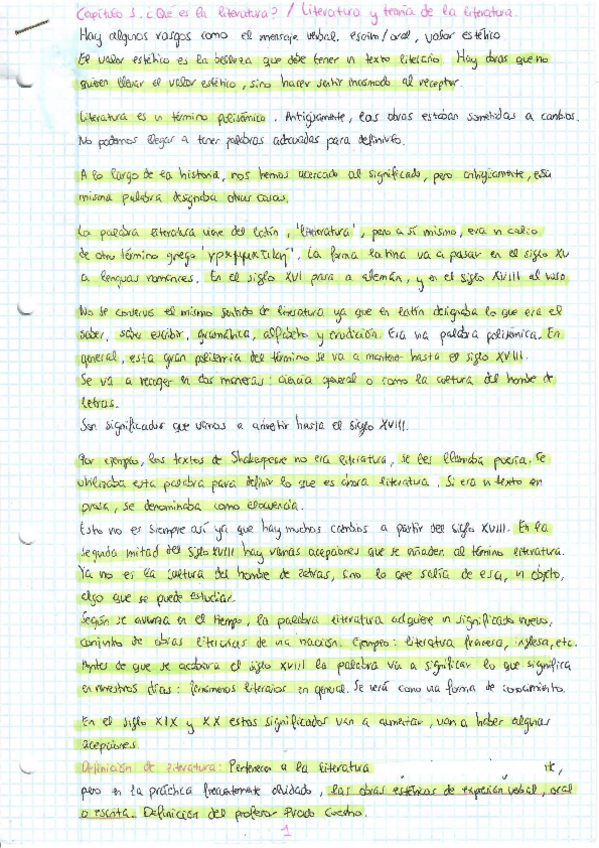 Capítulo 1. ¿Qué es la literatura? / Literatura y teoría de la literatura.
Hay algunos rasgos como el mensaje verbal, escrito/oral, valor estético.
El valor estético es la belleza que debe tener un texto literario. Hay obras que no
quieren llevar el valor estético, sino hacer sentir incómodo al receptor.
Literatura es un término polisémico. Antiguamente, las obras estaban sometidas a cambios.
No podemos llegar a tener palabras adecuadas para definirlo.
A lo largo de la historia, nos hemos acercado al significado, pero antiguamente, esa
misma palabra designaba otras cosas.
La palabra literatura viene del latín, 'literatura', pero a sí mismo, era un calco
de otro término griego. La forma latina va a pasar en el siglo XV
a lenguas romances. En el siglo XVI pasa a alemán, y en el siglo XVIII al ruso
No se conserva el mismo sentido de literatura ya que en latín designaba lo que era el
saber, saber escribir, gramática, alfabeto y erudición. Era una palabra polisémica. En
general, esta gran polisemia del término se va a mantener hasta el siglo XVIII.
Se va a recoger en dos maneras: ciencia general o como la cultura del hombre de
letras.
Son significados que vamos a admitir hasta el siglo XVIII.
Por ejemplo, los textos de Shakespeare no era literatura, se les llamaba poesía. Se
utilizaba esta palabra para definir lo que es ahora literatura. Si era un texto en
prosa, se denominaba como elocuencia.
Esto no es siempre así ya que hay muchos cambios a partir del siglo XVIII. En la
segunda mitad del siglo XVIII hay varias acepciones que se añaden al término literatura.
Ya no es la cultura del hombre de letras, sino lo que salía de esa, un objeto,
algo que se puede estudiar.
Según se avanza en el tiempo, la palabra literatura adquiere un significado nuevo,
conjunto de obras literarias de una nación. Ejemplo: literatura francesa, inglesa, etc.
Antes de que se acabara el siglo XVIII la palabra va a significar lo que significa
en nuestros días: fenómenos literarios en general. Se verá como una forma de conocimiento.
En el siglo XIX y XX estos significados van a aumentar, van a haber algunas
acepciones.
Definición de literatura: Pertenecen a la literatura
pero en la práctica frecuentemente olvidado, las obras estéticas de expresión verbal, oral
o escrita. Definición del profesor Prado Coelho.
1